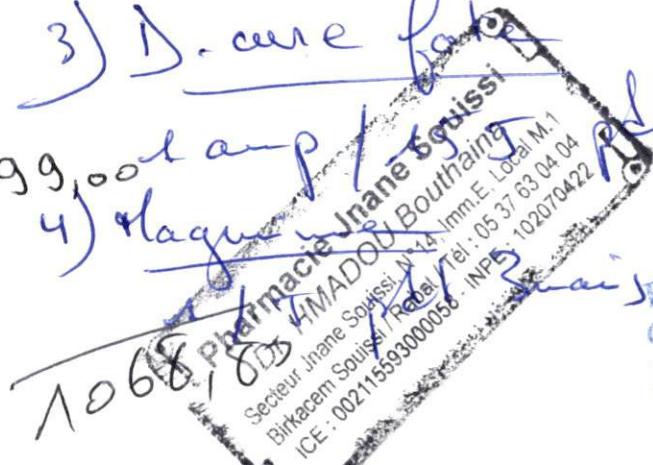 3) D-cure forte
99,00 1 amp / 15 J pdt
4)
1 / J pdt 3 mois
1068,80
Pharmacie Jnane Souissi
Dr HMADOU Bouthaina
Secteur Jnane Souissi, N°14, Imm.E, Local M.1
Birkacem Souissi / Rabat / Tél : 05 37 63 04 04
ICE : 002115593000058 - INPE : 102070422